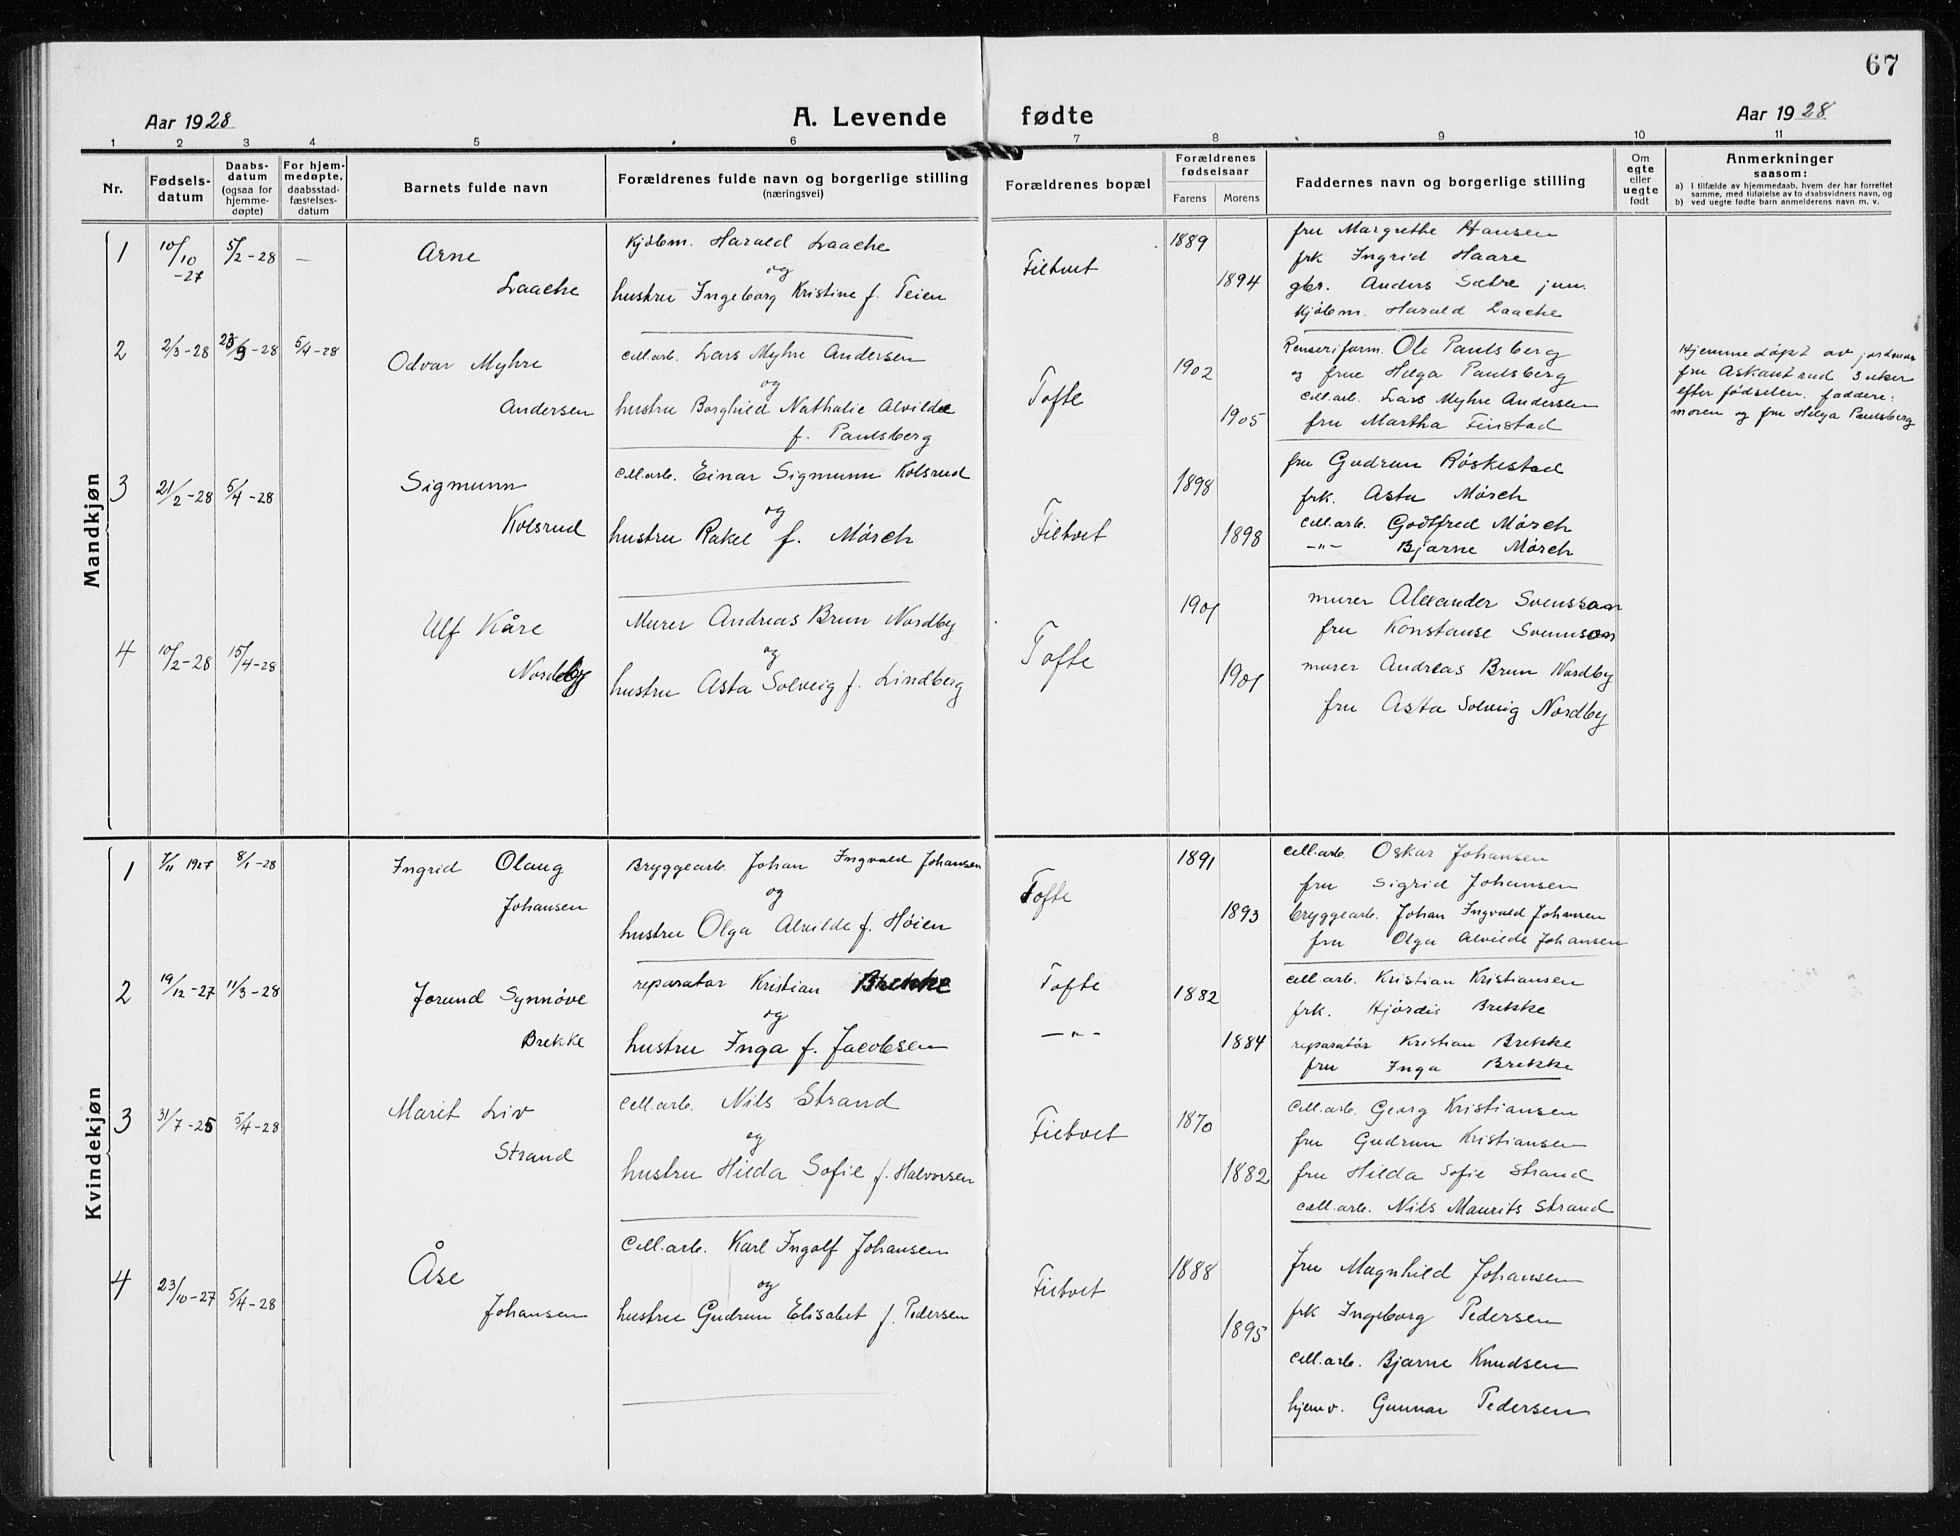 67
Aar 1928
A. Levende fødte
Aar 1928
1 2 3 4 5 6 7 8 9 10 11
Nr.
Fødsels-
datum
Daabs-
datum
(ogsaa for
hjemme-
døpte)
For hjem-
medøpte,
daabsstad-
fæstelses-
datum
Barnets fulde navn
Forældrenes fulde navn og borgerlige stilling
(næringsvei)
Forældrenes bopæl
Forældrenes
fødselsaar
Farens Morens
Faddernes navn og borgerlige stilling
Om
egte
eller
uegte
født
Anmerkninger
saasom:
a) I tilfælde av hjemmedaab, hvem der har forrettet
samme, med tilføielse av to daabsvidners navn, og
b) ved uegte fødte barn anmelderens navn m. v.
Mandkjøn
1
10/10
-27
5/2-28
—
Arne
Laache
Kjøbm. Harald Laache
og
hustru Ingeborg Kristine f. Teien
Filtvet
1889
1894
fru Margrethe Hansen
frk Ingrid Haare
gbr. Anders Sætre jun.
Kjøbm. Harald Laache
2
2/3-28
5/4-28
Odvar Myhre
Andersen
cell.arb. Lars Myhre Andersen
og
hustru Borghild Nathalie Alvilde
f. Paulsberg
Tofte
1902
1905
Renseriform. Ole Paulsberg
og frue Helga Paulsberg
Cell.arb. Lars Myhre Andersen
fru Martha Finstad
Hjemmedøpt av jordmor
fru Askautrud 3 uker
efter fødselen, faddere:
moren og fru Helga Paulsberg
3
21/2-28
5/4-28
Sigmunn
Kolsrud
Cell.arb. Einar Sigmunn Kolsrud
og
hustru Rakel f. Mørch
Filtvet
1898
1898
fru Gudrun Røskestad
frk. Asta Mørch
Cell.arb. Godtfred Mørch
—"— Bjarne Mørch
4
10/2-28
15/4-28
Ulf Kåre
Nordby
Murer Andreas Brun Nordby
og
hustru Asta Solveig f. Lindberg
Tofte
1901
1901
murer Alexander Svensson
fru Konstanse Svensson
murer Andreas Brun Nordby
fru Asta Solveig Nordby
Kvindekjøn
1
7/11 1927
8/1-28
Ingrid Olaug
Johansen
Bryggearb. Johan Ingvald Johansen
og
hustru Olga Alvilde f. Høien
Tofte
1891
1893
Cell.arb. Oskar Johansen
fru Sigrid Johansen
bryggearb. Johan Ingvald Johansen
fru Olga Alvilde Johansen
2
19/12-27
11/3-28
Jorund Synnøve
Brekke
reparatør Kristian Brekke
og
hustru Inga f. Jacobsen
Tofte
—"—
1882
1884
cell.arb. Kristian Kristiansen
frk. Hjørdis Brekke
reparatør Kristian Brekke
fru Inga Brekke
3
31/7-25
5/4-28
Marit Liv
Strand
Cell.arb. Nils Strand
og
hustru Hilda Sofie f. Halvorsen
Filtvet
1870
1882
Cell.arb. Georg Kristiansen
fru Gudrun Kristiansen
fru Hilda Sofie Strand
cell.arb. Nils Maurits Strand
4
23/10-27
5/4-28
Åse
Johansen
Cell.arb. Karl Ingolf Johansen
og
hustru Gudrun Elisabet f. Pedersen
Filtvet
1888
1895
fru Magnhild Johansen
frk Ingeborg Pedersen
Cell.arb. Bjarne Knudsen
hjemv. Gunnar Pedersen